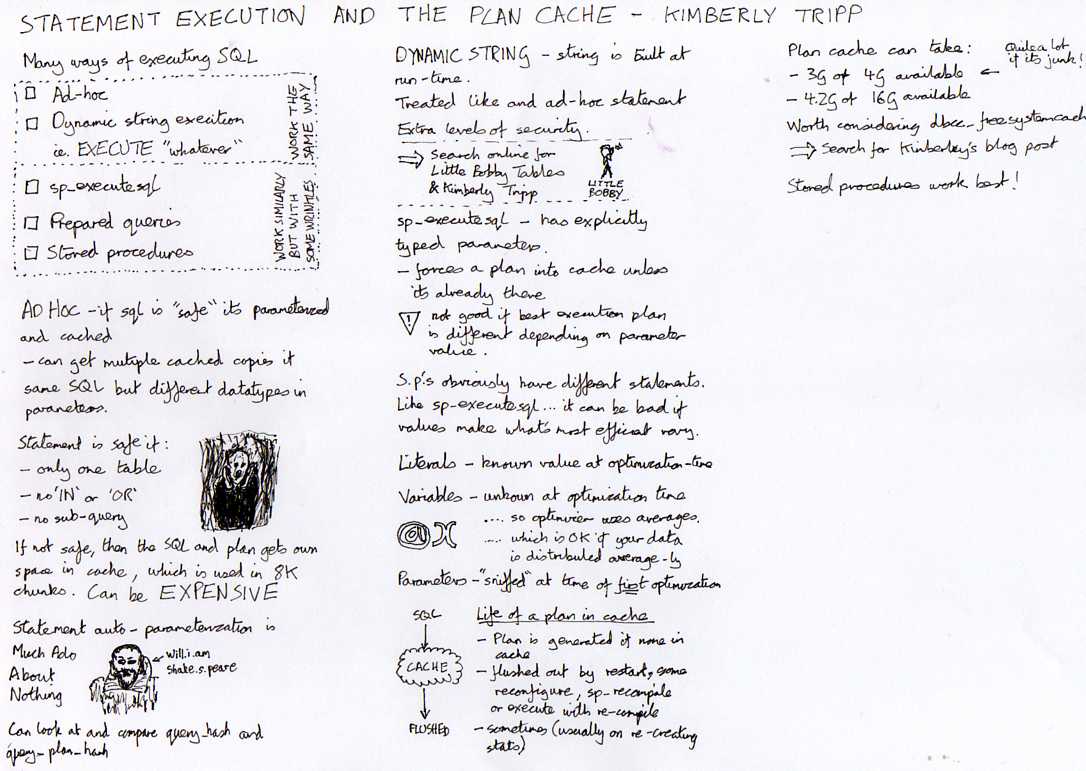 STATEMENT EXECUTION AND THE PLAN CACHE - KIMBERLY TRIPP
Many ways of executing SQL
Ad-hoc
Dynamic string execition
ie. EXECUTE "whatever"
WORK THE
SAME WAY
sp_executesql
Prepared queries
Stored procedures
WORK SIMILARLY
BUT WITH
SOME WRINKLES
AD HOC - if sql is "safe" its parameterized
and cached
- can get multiple cached copies if
same SQL but different datatypes in
parameters.
Statement is safe if:
- only one table
- no 'IN' or 'OR'
- no sub-query
If not safe, then the SQL and plan gets own
space in cache, which is used in 8K
chunks. Can be EXPENSIVE
Statement auto-parameterization is
Much Ado
About
Nothing
will.i.am
shake.s.peare
Can look at and compare query_hash and
query_plan_hash
DYNAMIC STRING - string is built at
run-time.
Treated like and ad-hoc statement
Extra levels of security.
⇒ Search online for
Little Bobby Tables
& Kimberly Tripp
LITTLE
BOBBY
sp_executesql - has explicitly
typed parameters.
- forces a plan into cache unless
its already there
! not good if best execution plan
is different depending on parameter
value.
S.p.'s obviously have different statements.
Like sp_executesql... it can be bad if
values make what's most efficient vary.
Literals - known value at optimization-time
Variables - unkown at optimization time
.... so optimizer uses averages.
..... which is OK if your data
is distributed average-ly
Parameters - "sniffed" at time of first optimization
SQL
CACHE
FLUSHED
Life of a plan in cache
- Plan is generated if none in
cache
- flushed out by restart, some
reconfigure, sp_recompile
or execute with re-compile
- sometimes (usually on re-creating
stats)
Plan cache can take:
- 3G of 4G available ←
Quite a lot
if its junk!
- 4.2G of 16G available
Worth considering dbcc_freesystemcache
⇒ Search for Kimberley's blog post
Stored procedures work best!